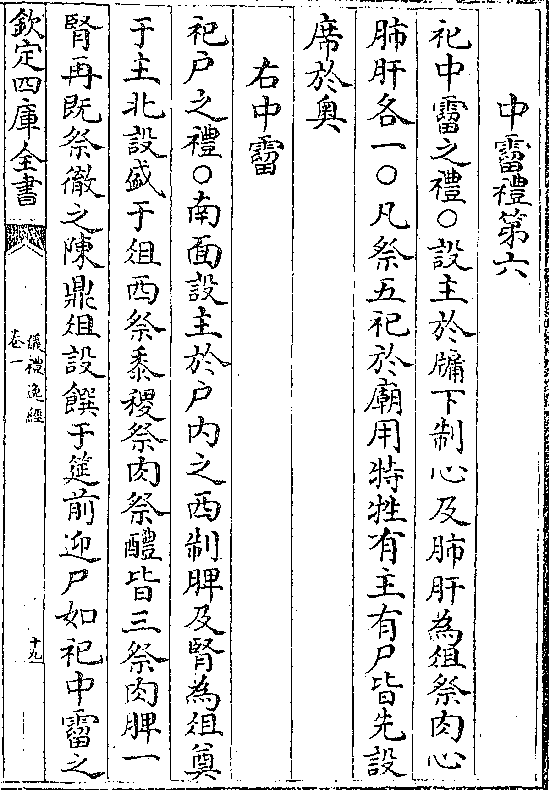 中霤禮第六
祀中霤之禮○設主於牖下制心及肺肝為俎祭肉心
肺肝各一○凡祭五祀於廟用特牲有主有尸皆先設
席於奧
右中霤
祀戶之禮○南面設主於戶内之西制脾及腎為俎奠
于主北設盛于俎西祭黍稷祭肉祭醴皆三祭肉脾一
腎再既祭徹之陳鼎俎設饌于筵前迎尸如祀中霤之
欽定四庫全書
儀禮逸經
卷一
十九